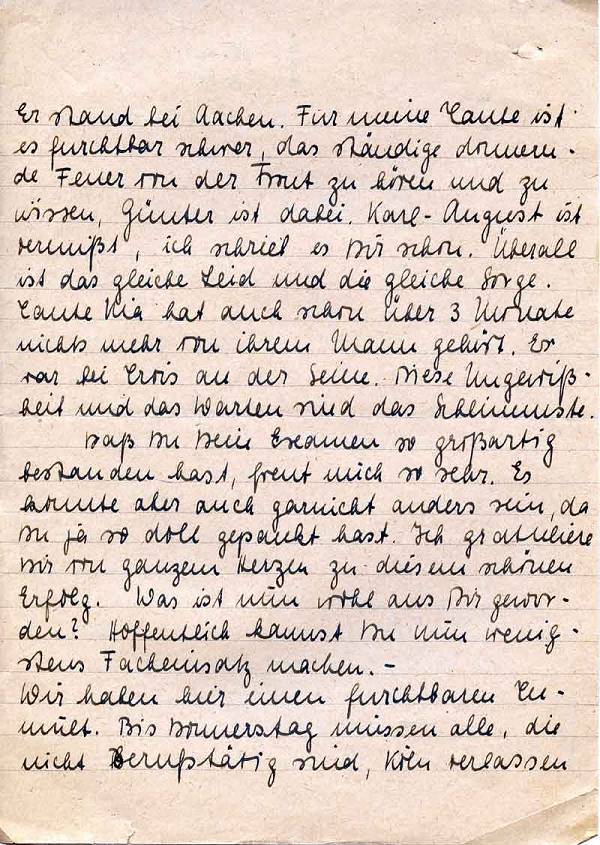 Er stand bei Aachen. Für meine Tante ist
es furchtbar schwer, das ständige donnern-
de Feuer von der Front zu hören und zu
wissen, Günter ist dabei. Karl-August ist
vermißt, ich schrieb es Dir schon. Überall
ist das gleiche Leid und die gleiche Sorge.
Tante Mia hat auch schon über 3 Monate
nichts mehr von ihrem Mann gehört. Er
war bei an der Seine. Diese Ungewiß-
heit und das Warten sind das Schlimmste.
Daß Du Dein Examen so großartig
bestanden hast, freut mich so sehr. Es
konnte aber auch garnicht anders sein, da
Du ja so doll gepaukt hast. Ich gratuliere
Dir von ganzem Herzen zu diesem schönen
Erfolg. Was ist nun wohl aus Dir gewor-
den? Hoffentlich kannst Du nun wenig-
stens Facheinsatz machen.-
Wir haben hier einen furchtbaren Tu-
mult. Bis Donnerstag müssen alle, die
nicht Berufstätig sind, Köln verlassen